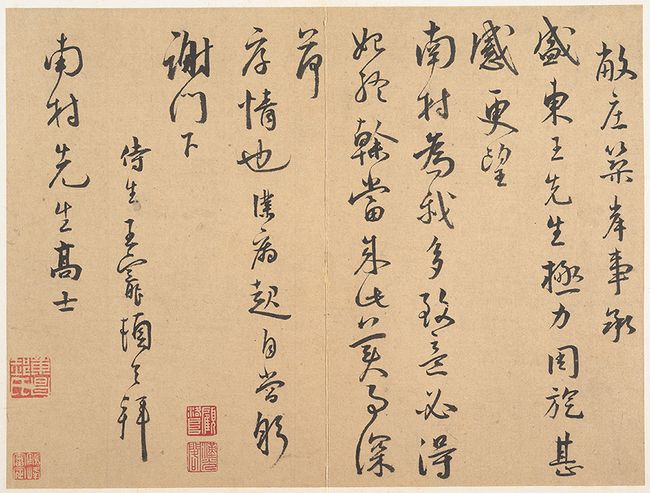 敝庄築岸事承
盛東王先生極力周旋甚
感更望
南村為我多致意必得
始終幹當成此美事深
荷
存情也僕病起自當躬
謝門下
侍生王寵頓首拜
南村先生高士